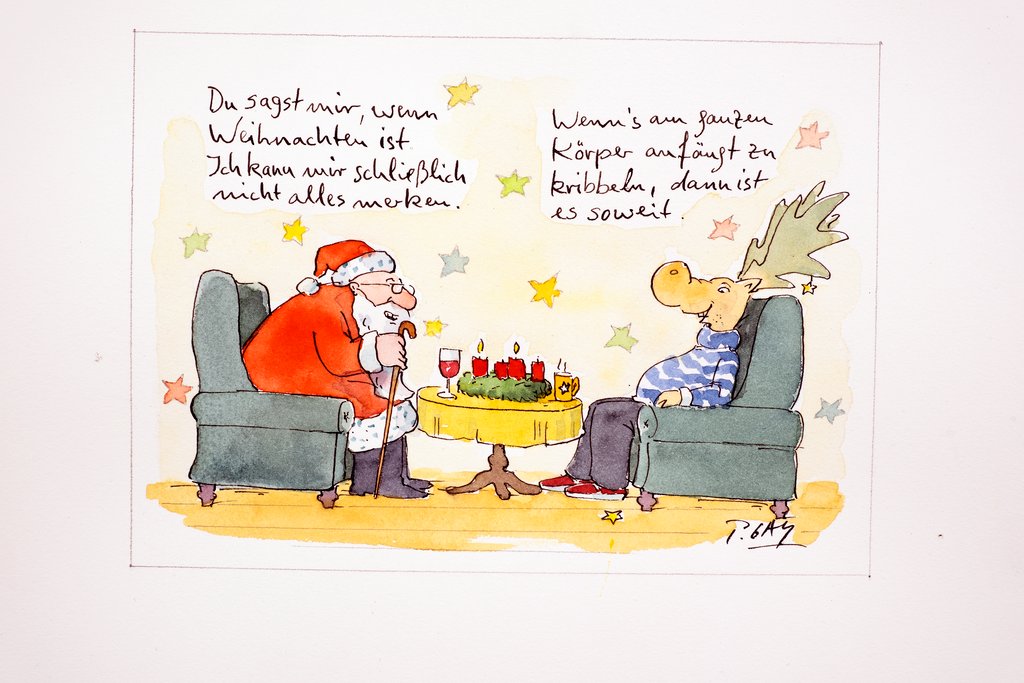 Du sagst mir, wenn
Weihnachten ist
Ich kann mir schließlich
nicht alles merken.
Wenn's am ganzen
Körper anfängt zu
kribbeln, dann ist
es soweit.
P. GAY